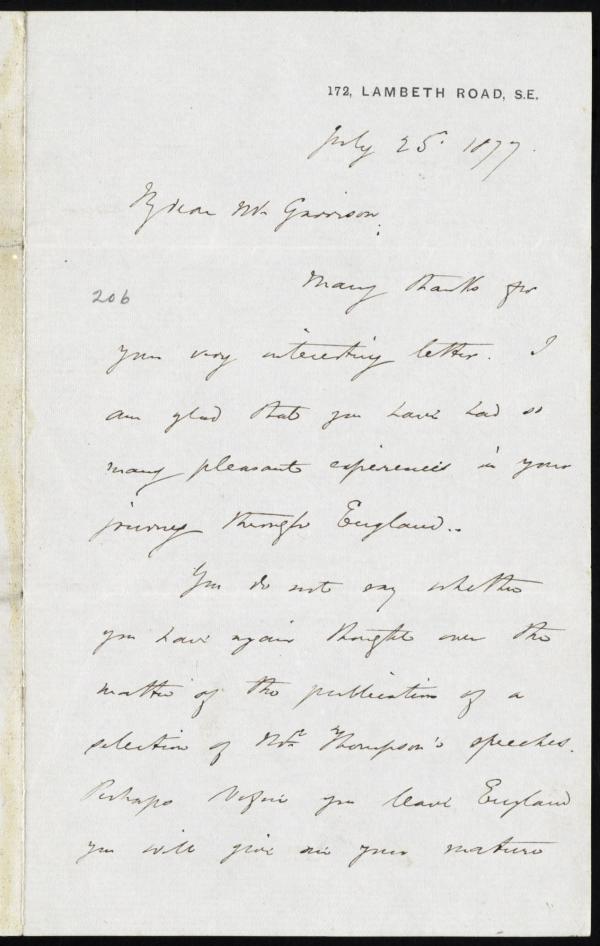 172, LAMBETH ROAD, S.E.
July 25. 1877.
My dear Mr Garrison,
206
Many thanks for
your very interesting letter. I
am glad that you have had so
many pleasant experiences in your
journey through England..
You do not say whether
you have again thought over the
matter of the publication of a
selection of Mr Thompson's speeches.
Perhaps before you leave England
you will give me your mature